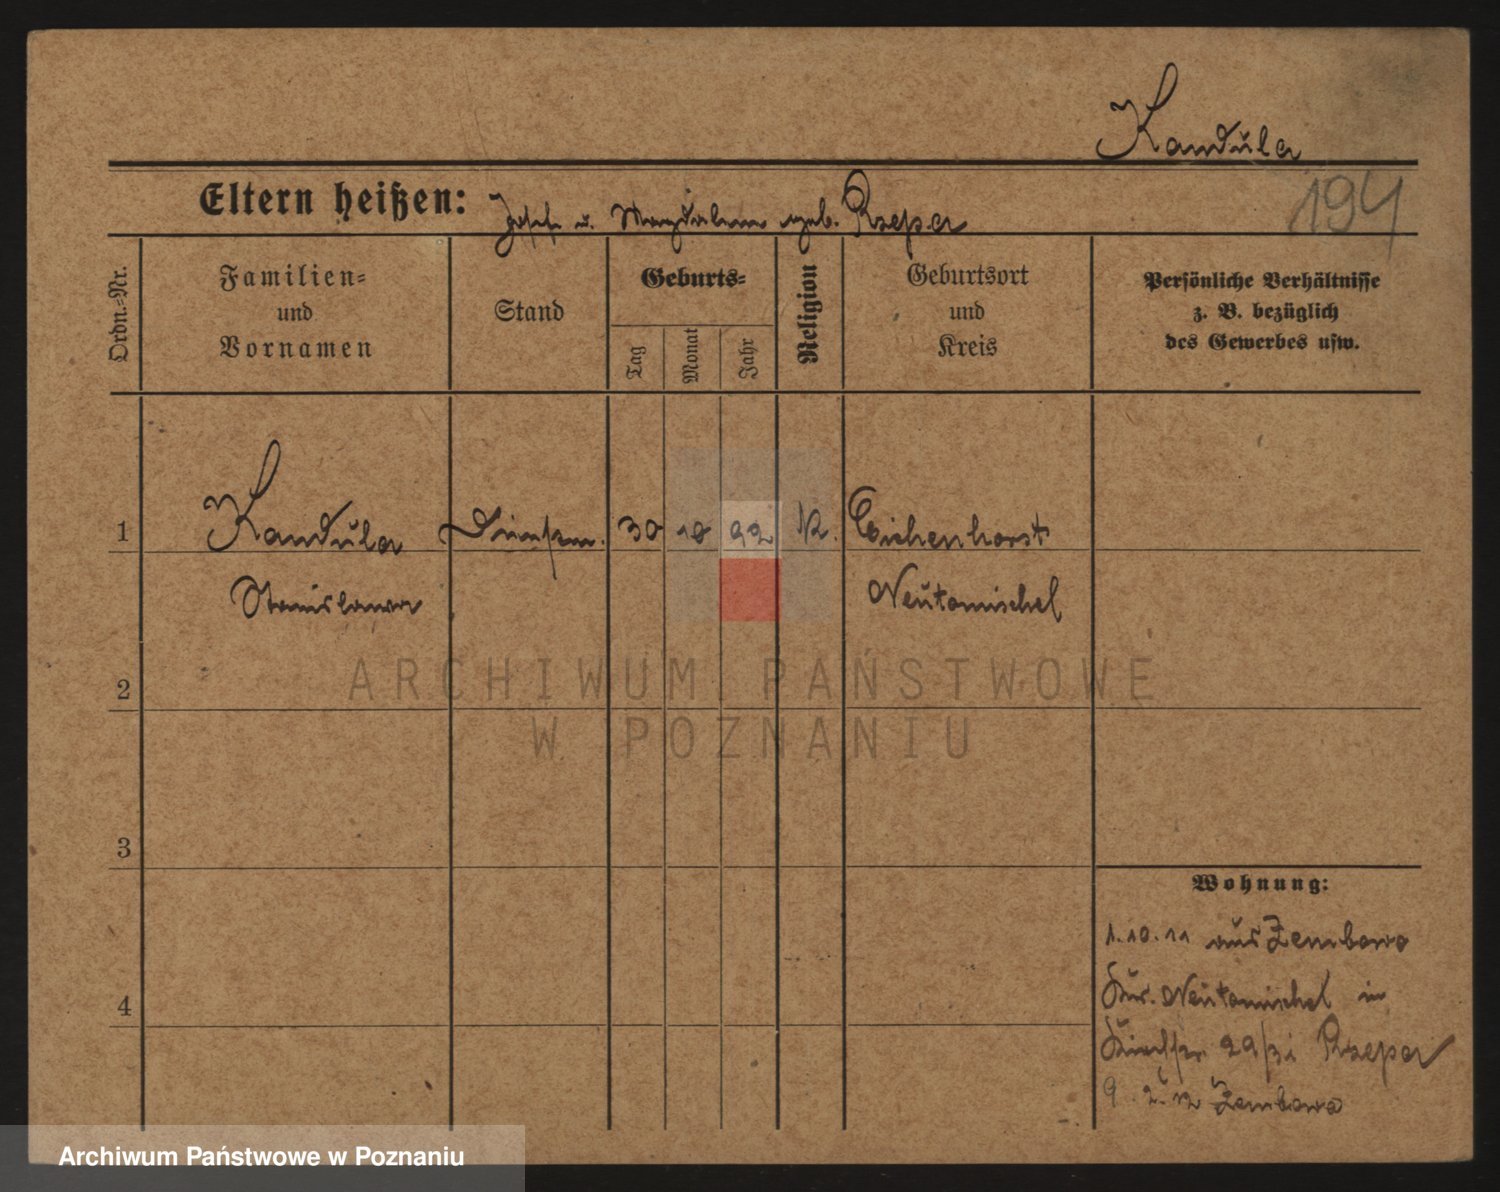 Kandula
194
Eltern heißen: Josef u. Magdalena geb. Rzepa
Ordn.-Nr.
Familien-
und
Vornamen
Stand
Geburts-
Tag
Monat
Jahr
Religion
Geburtsort
und
Kreis
Persönliche Verhältnisse
z. B. bezüglich
des Gewerbes usw.
1 Kandula 30 10 92 K. Eichenhorst
Stanislawa Neutomischel
2
3
4
Wohnung:
1.10.11 aus Zembowo
Neutomischel in
29/31 Rzepa
9. 2. 12 Zembowo
ARCHIWUM PAŃSTWOWE
W POZNANIU
Archiwum Państwowe w Poznaniu